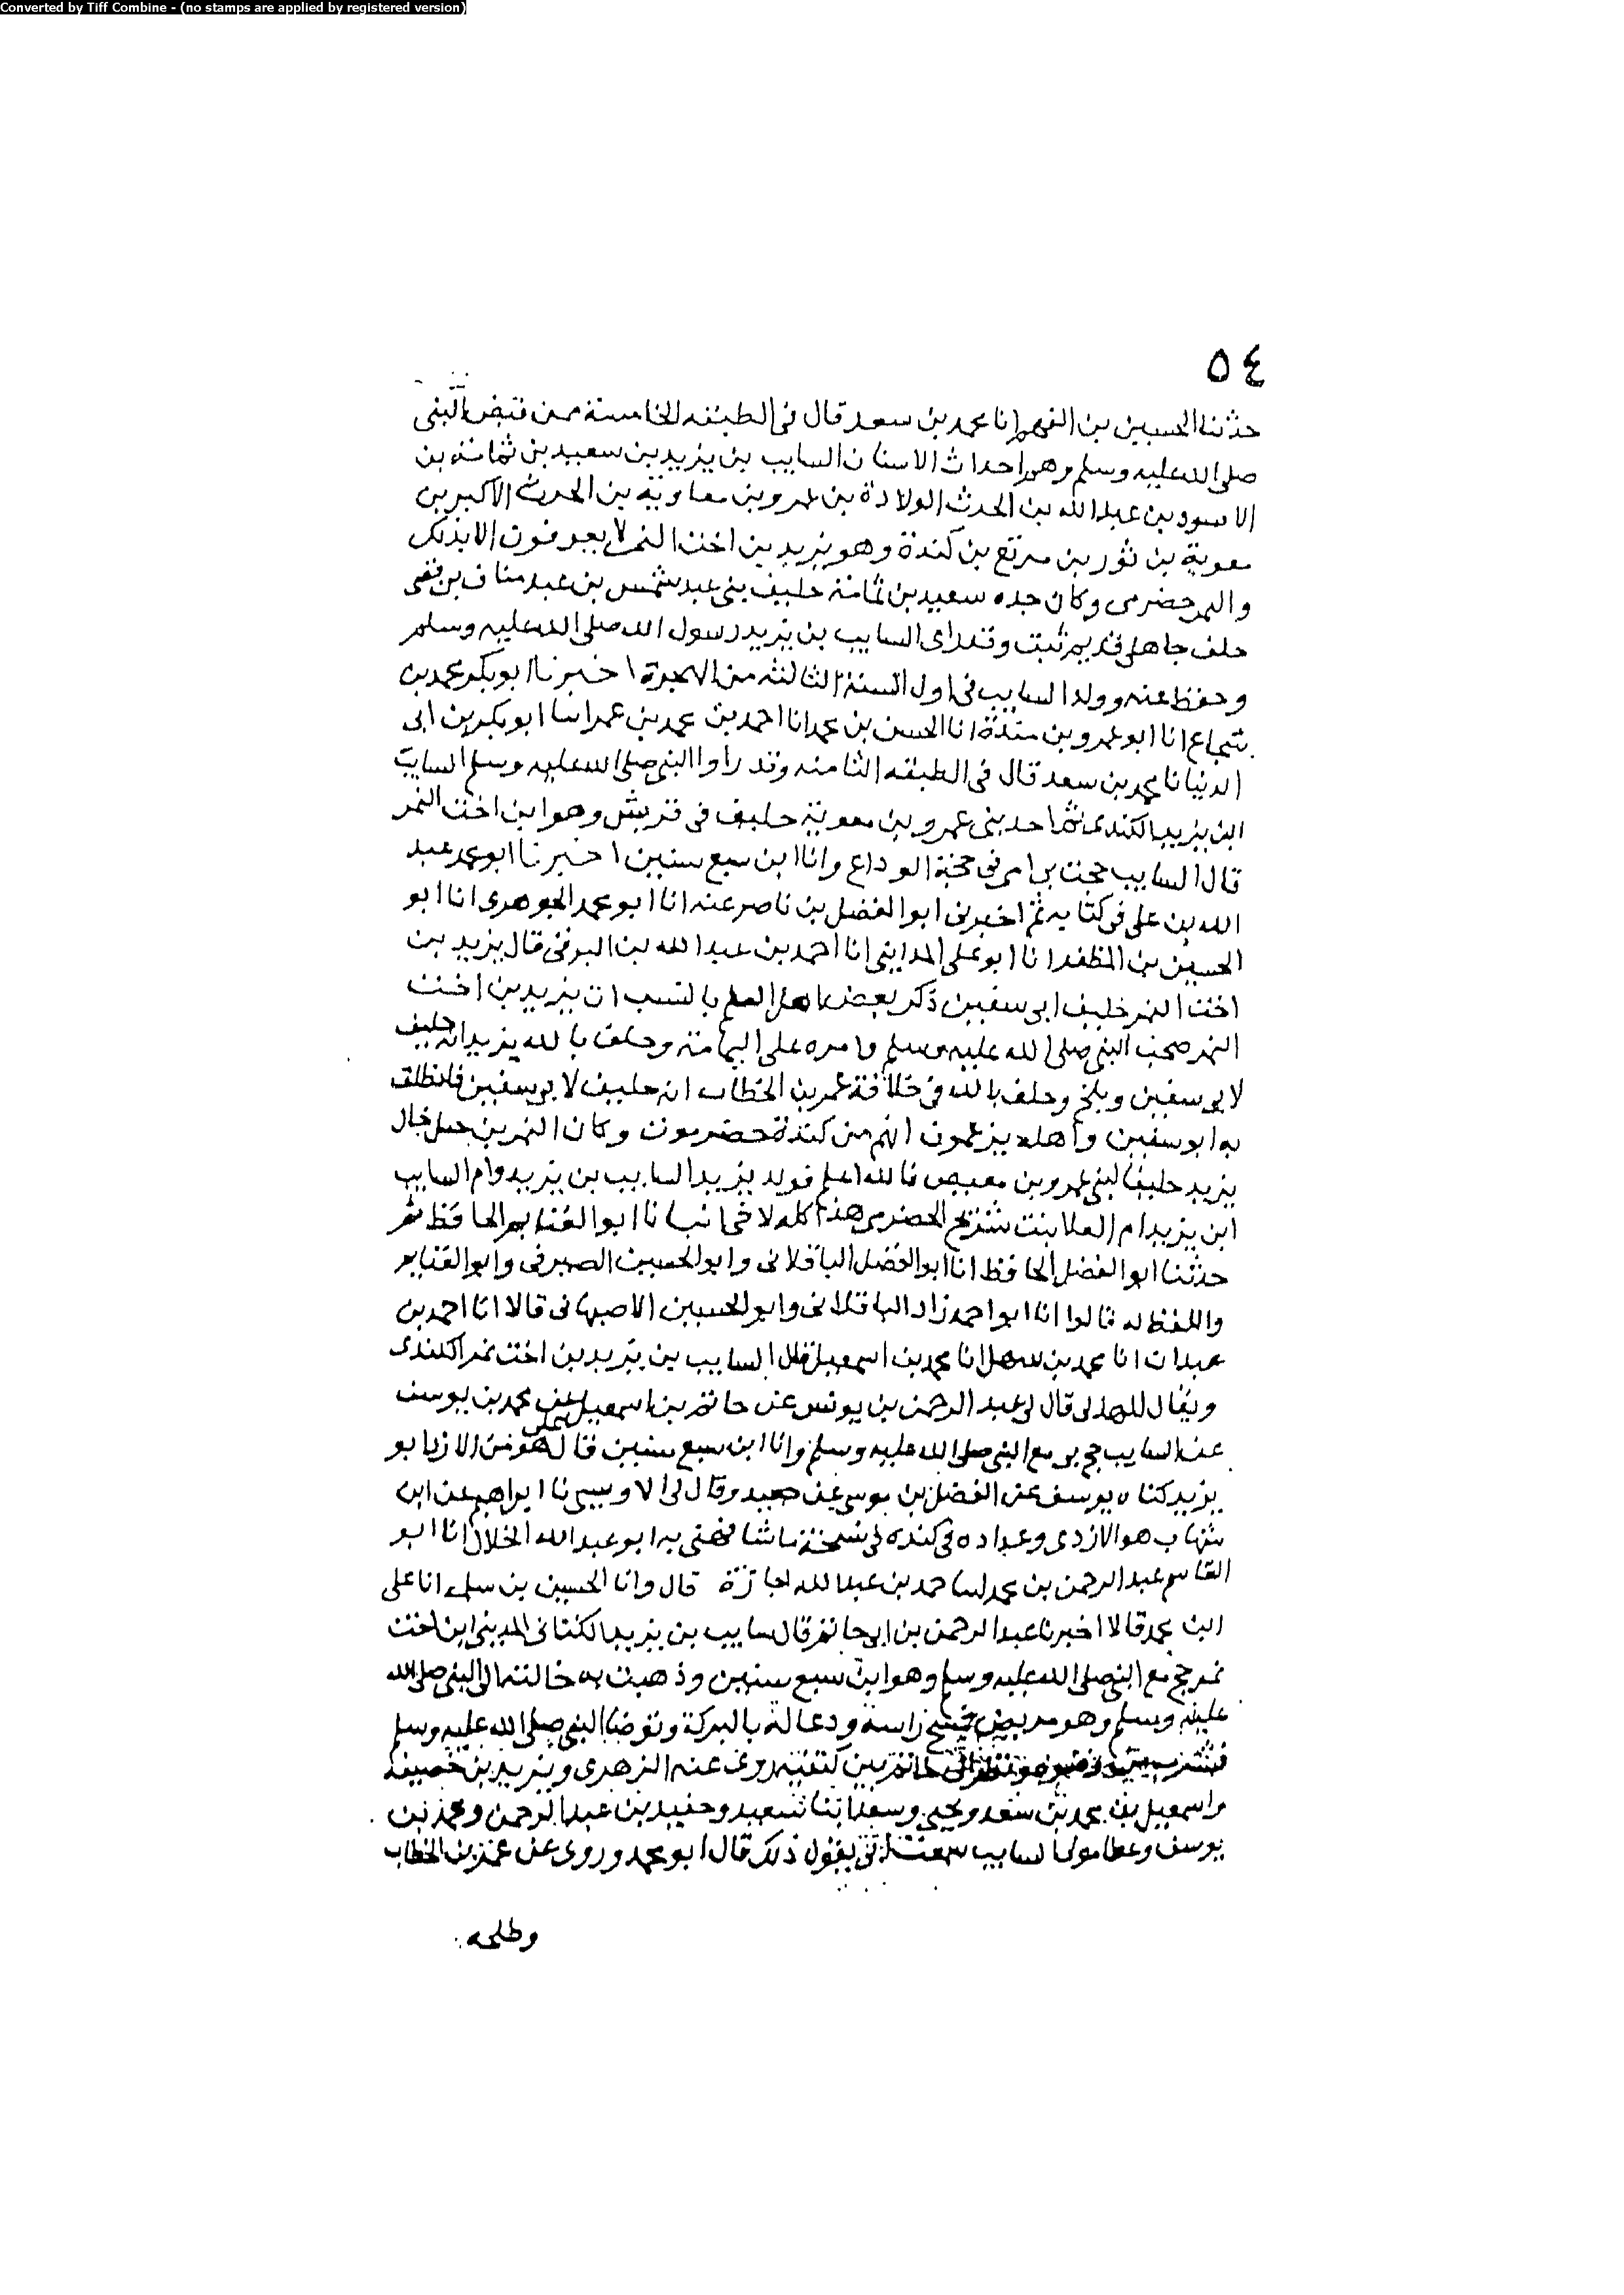 Converted by Tiff Combine - (no stamps are applied by registered version)
٥٤
حدثنا الحسين بن الفهم انا محمد بن سعد قال فى الطبقه الخامسة ممن قبض النبى
صلى الله عليه وسلم وهم احداث الاسنان السايب بن يزيد بن سعيد بن ثمامة بن
الاسود بن عبد الله بن الحرث الولادة بن عمرو بن معاوية بن الحرث الاكبر بن
معوية بن ثور بن مرتع بن كندة وهو يزيد بن اخت النمر لا يعرفون الا بذلك
والنمر حضرمى وكان جده سعيد بن ثمامة حليف بنى عبد شمس بن عبد مناف بن قصى
حلف جاهلى قديم ثبت وقد راى السايب بن يزيد رسول الله صلى الله عليه وسلم
وحفظ عنه وولد السايب فى اول السنة الثالثه من الهجرة اخبرنا ابو بكر محمد بن
شجاع انا ابو عمرو بن مندة انا الحسن بن محمد انا احمد بن محمد بن عمر انبا ابو بكر بن ابى
الدنيا نا محمد بن سعد قال فى الطبقه الثامنه وقد راوا النبى صلى الله عليه وسلم السايب
ابن يزيد الكندى ثم احد بنى عمرو بن معوية حليف فى قريش وهو ابن اخت النمر
قال السايب حجت بى امى فى حجة الوداع وانا ابن سبع سنين اخبرنا ابو محمد عبد
الله بن على فى كتابه ثم اخبرنى ابو الفضل بن ناصر عنه انا ابو محمد الجوهرى انا ابو
الحسين بن المظفر انا ابو على المداينى انا احمد بن عبد الله بن البرقى قال يزيد بن
اخت النمر حليف ابى سفين ذكر بعض اهل العلم بالنسب ان يزيد بن اخت
النمر صحب النبى صلى الله عليه وسلم وامره على اليمامة وحلف بالله يزيد انه حليف
لابى سفين وبلخ وحلف بالله فى خلافة عمر بن الخطاب انه حليف لابى سفين فانطلق
به ابو سفين واهله يزعمون انهم من كندة حضرموت وكان النمر بن جبل خال
يزيد حليفا لبنى عمرو بن معيص فالله اعلم فولد يزيد السايب بن يزيد وام السايب
ابن يزيد ام العلا بنت شريح الحضرمى هذا كله لا انبانا ابو الغنايم الحافظ ثم
حدثنا ابو الفضل الحافظ انا ابو الفضل الباقلانى وابو الحسين الصيرفى وابو الغنايم
واللفظ له قالوا انا ابو احمد زاد الباقلانى وابو الحسين الاصبهانى قالا انا احمد بن
عبدان انا محمد بن سهل انا محمد بن اسمعيل قال السايب بن يزيد بن اخت نمر الكندى
ويقال الهذلى قال لى عبد الرحمن بن يونس عن حاتم بن اسمعيل عن محمد بن يوسف
عن السايب حج بى مع النبى صلى الله عليه وسلم وانا ابن سبع سنين قال هو من الازد ابو
يزيد كناه يوسف عن الفضل بن موسى عن جعيد وقال لى الاويسى نا ابراهيم عن ابن
شهاب هو الازدى وعداده فى كنده فى نسخة ما شافهنى به ابو عبد الله الخلال انا ابو
القاسم عبد الرحمن بن محمد انبا حمد بن عبد الله اجازة قال وانا الحسين بن سلمه انا على
ابن محمد قالا اخبرنا عبد الرحمن بن ابى حاتم قال سايب بن يزيد الكنانى المدينى ابن اخت
نمر حج مع النبى صلى الله عليه وسلم وهو ابن سبع سنين وذهبت به خالته الى النبى صلى الله
عليه وسلم وهو مريض فمسح راسه ودعا له بالبركة وتوضا النبى صلى الله عليه وسلم
فشرب من وضوه ونظر الى خاتم بين كتفيه روى عنه الزهرى ويزيد بن خصيفة
واسمعيل بن محمد بن سعد ويحيى وسعد ابنا سعيد وحنيد بن عبد الرحمن ومحمد بن
يوسف وعطا مولى السايب سمعت ابى يقول ذلك قال ابو محمد وروى عن عمر بن الخطاب
وطلحه